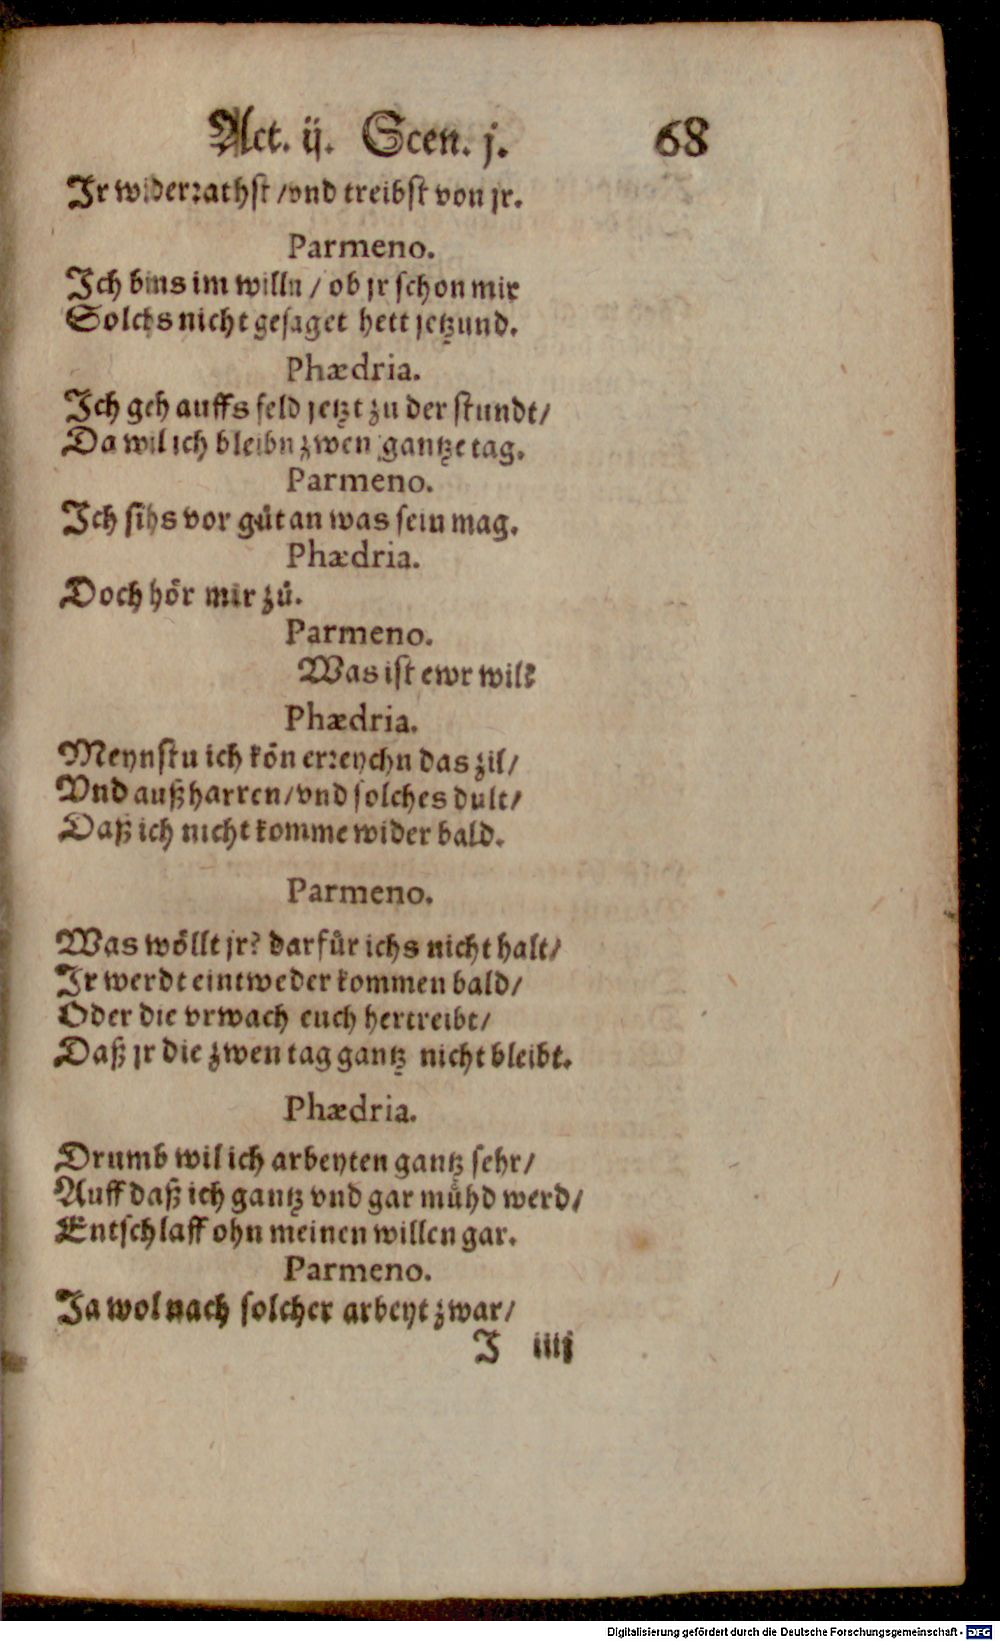 Act. ij. Scen. j. 68
Jr widerrathst / vnd treibst von jr.
Parmeno.
Ich bins im willn / ob jr schon mir
Solchs nicht gesaget hett jetzund.
Phædria.
Ich geh auffs feld jetzt zu der stundt /
Da wil ich bleibn zwen gantze tag.
Parmeno.
Ich sihs vor gůt an was sein mag.
Phædria.
Doch hör mir zů.
Parmeno.
Was ist ewr wil?
Phædria.
Meynstu ich kön erreychn das zil /
Vnd außharren / vnd solches dult /
Daß ich nicht komme wider bald.
Parmeno.
Was wöllt jr? darfür ichs nicht halt /
Jr werdt eintweder kommen bald /
Oder die vrwach euch hertreibt /
Daß jr die zwen tag gantz nicht bleibt.
Phædria.
Drumb wil ich arbeyten gantz sehr /
Auff daß ich gantz vnd gar můhd werd /
Entschlaff ohn meinen willen gar.
Parmeno.
Ja wol nach solcher arbeyt zwar /
J iiij
Digitalisierung gefördert durch die Deutsche Forschungsgemeinschaft - DFG